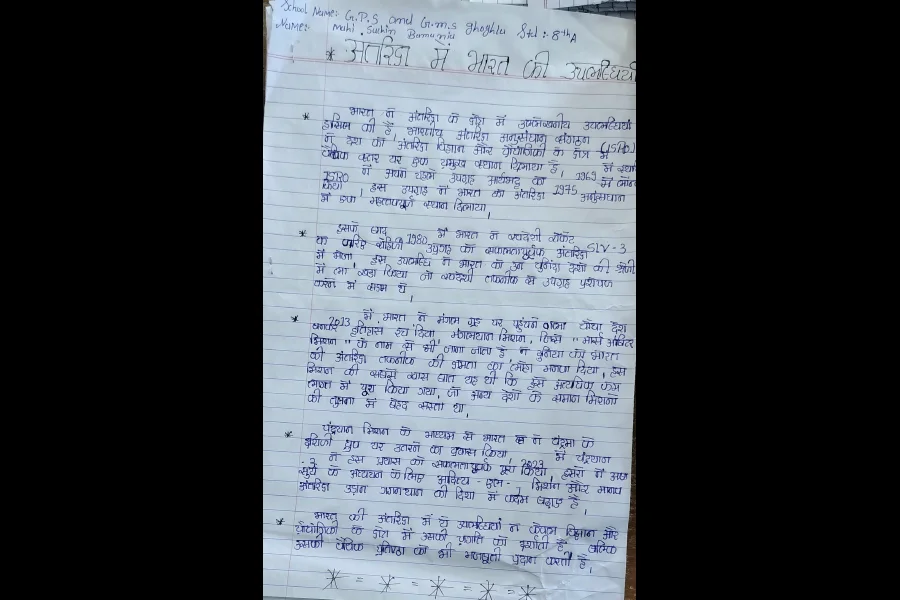 School Name: G.P.S and G.M.S ghoghla Std: 8th A
Name: Mahi Sachin Bamania
* अंतरिक्ष में भारत की उपलब्धियाँ
* भारत ने अंतरिक्ष के क्षेत्र में उल्लेखनीय उपलब्धियां
हासिल की हैं, भारतीय अंतरिक्ष अनुसंधान संगठन (ISRO)
ने देश को अंतरिक्ष विज्ञान और प्रौद्योगिकी के क्षेत्र में
वैश्विक स्तर पर एक प्रमुख स्थान दिलाया है, 1969 में स्थापित
ISRO ने अपने पहले उपग्रह आर्यभट्ट को 1975 में लॉन्च
किया, इस उपग्रह ने भारत को अंतरिक्ष अनुसंधान
में एक महत्वपूर्ण स्थान दिलाया,
* इसके बाद 1980 में भारत ने स्वदेशी रॉकेट SLV-3
के जरिए रोहिणी उपग्रह को सफलतापूर्वक अंतरिक्ष
में भेजा, इस उपलब्धि ने भारत को उन चुनिंदा देशों की श्रेणी
में ला खड़ा किया जो स्वदेशी तकनीक से उपग्रह प्रक्षेपण
करने में सक्षम थे,
* 2013 में भारत ने मंगल ग्रह पर पहुंचने वाला चौथा देश
बनकर इतिहास रच दिया मंगलयान मिशन, जिसे "मार्स ऑर्बिटर
मिशन" के नाम से भी जाना जाता है, ने दुनिया को भारत
की अंतरिक्ष तकनीक की क्षमता का लोहा मनवा दिया, इस
मिशन की सबसे खास बात यह थी कि इसे अत्यधिक कम
लागत में पूरा किया गया, जो अन्य देशों के समान मिशनों
की तुलना में बेहद सस्ता था,
* चंद्रयान मिशन के माध्यम से भारत ने चंद्रमा के
दक्षिणी ध्रुव पर उतरने का प्रयास किया, 2023 में चंद्रयान
-3 ने इस प्रयास को सफलतापूर्वक पूरा किया, इसरो ने अब
सूर्य के अध्ययन के लिए आदित्य-एल-1 मिशन और मानव
अंतरिक्ष उड़ान गगनयान की दिशा में कदम बढ़ाए हैं,
* भारत की अंतरिक्ष में ये उपलब्धियां न केवल विज्ञान और
प्रौद्योगिकी के क्षेत्र में उसकी प्रगति को दर्शाती हैं, बल्कि
उसकी वैश्विक प्रतिष्ठा को भी मजबूती प्रदान करती हैं,